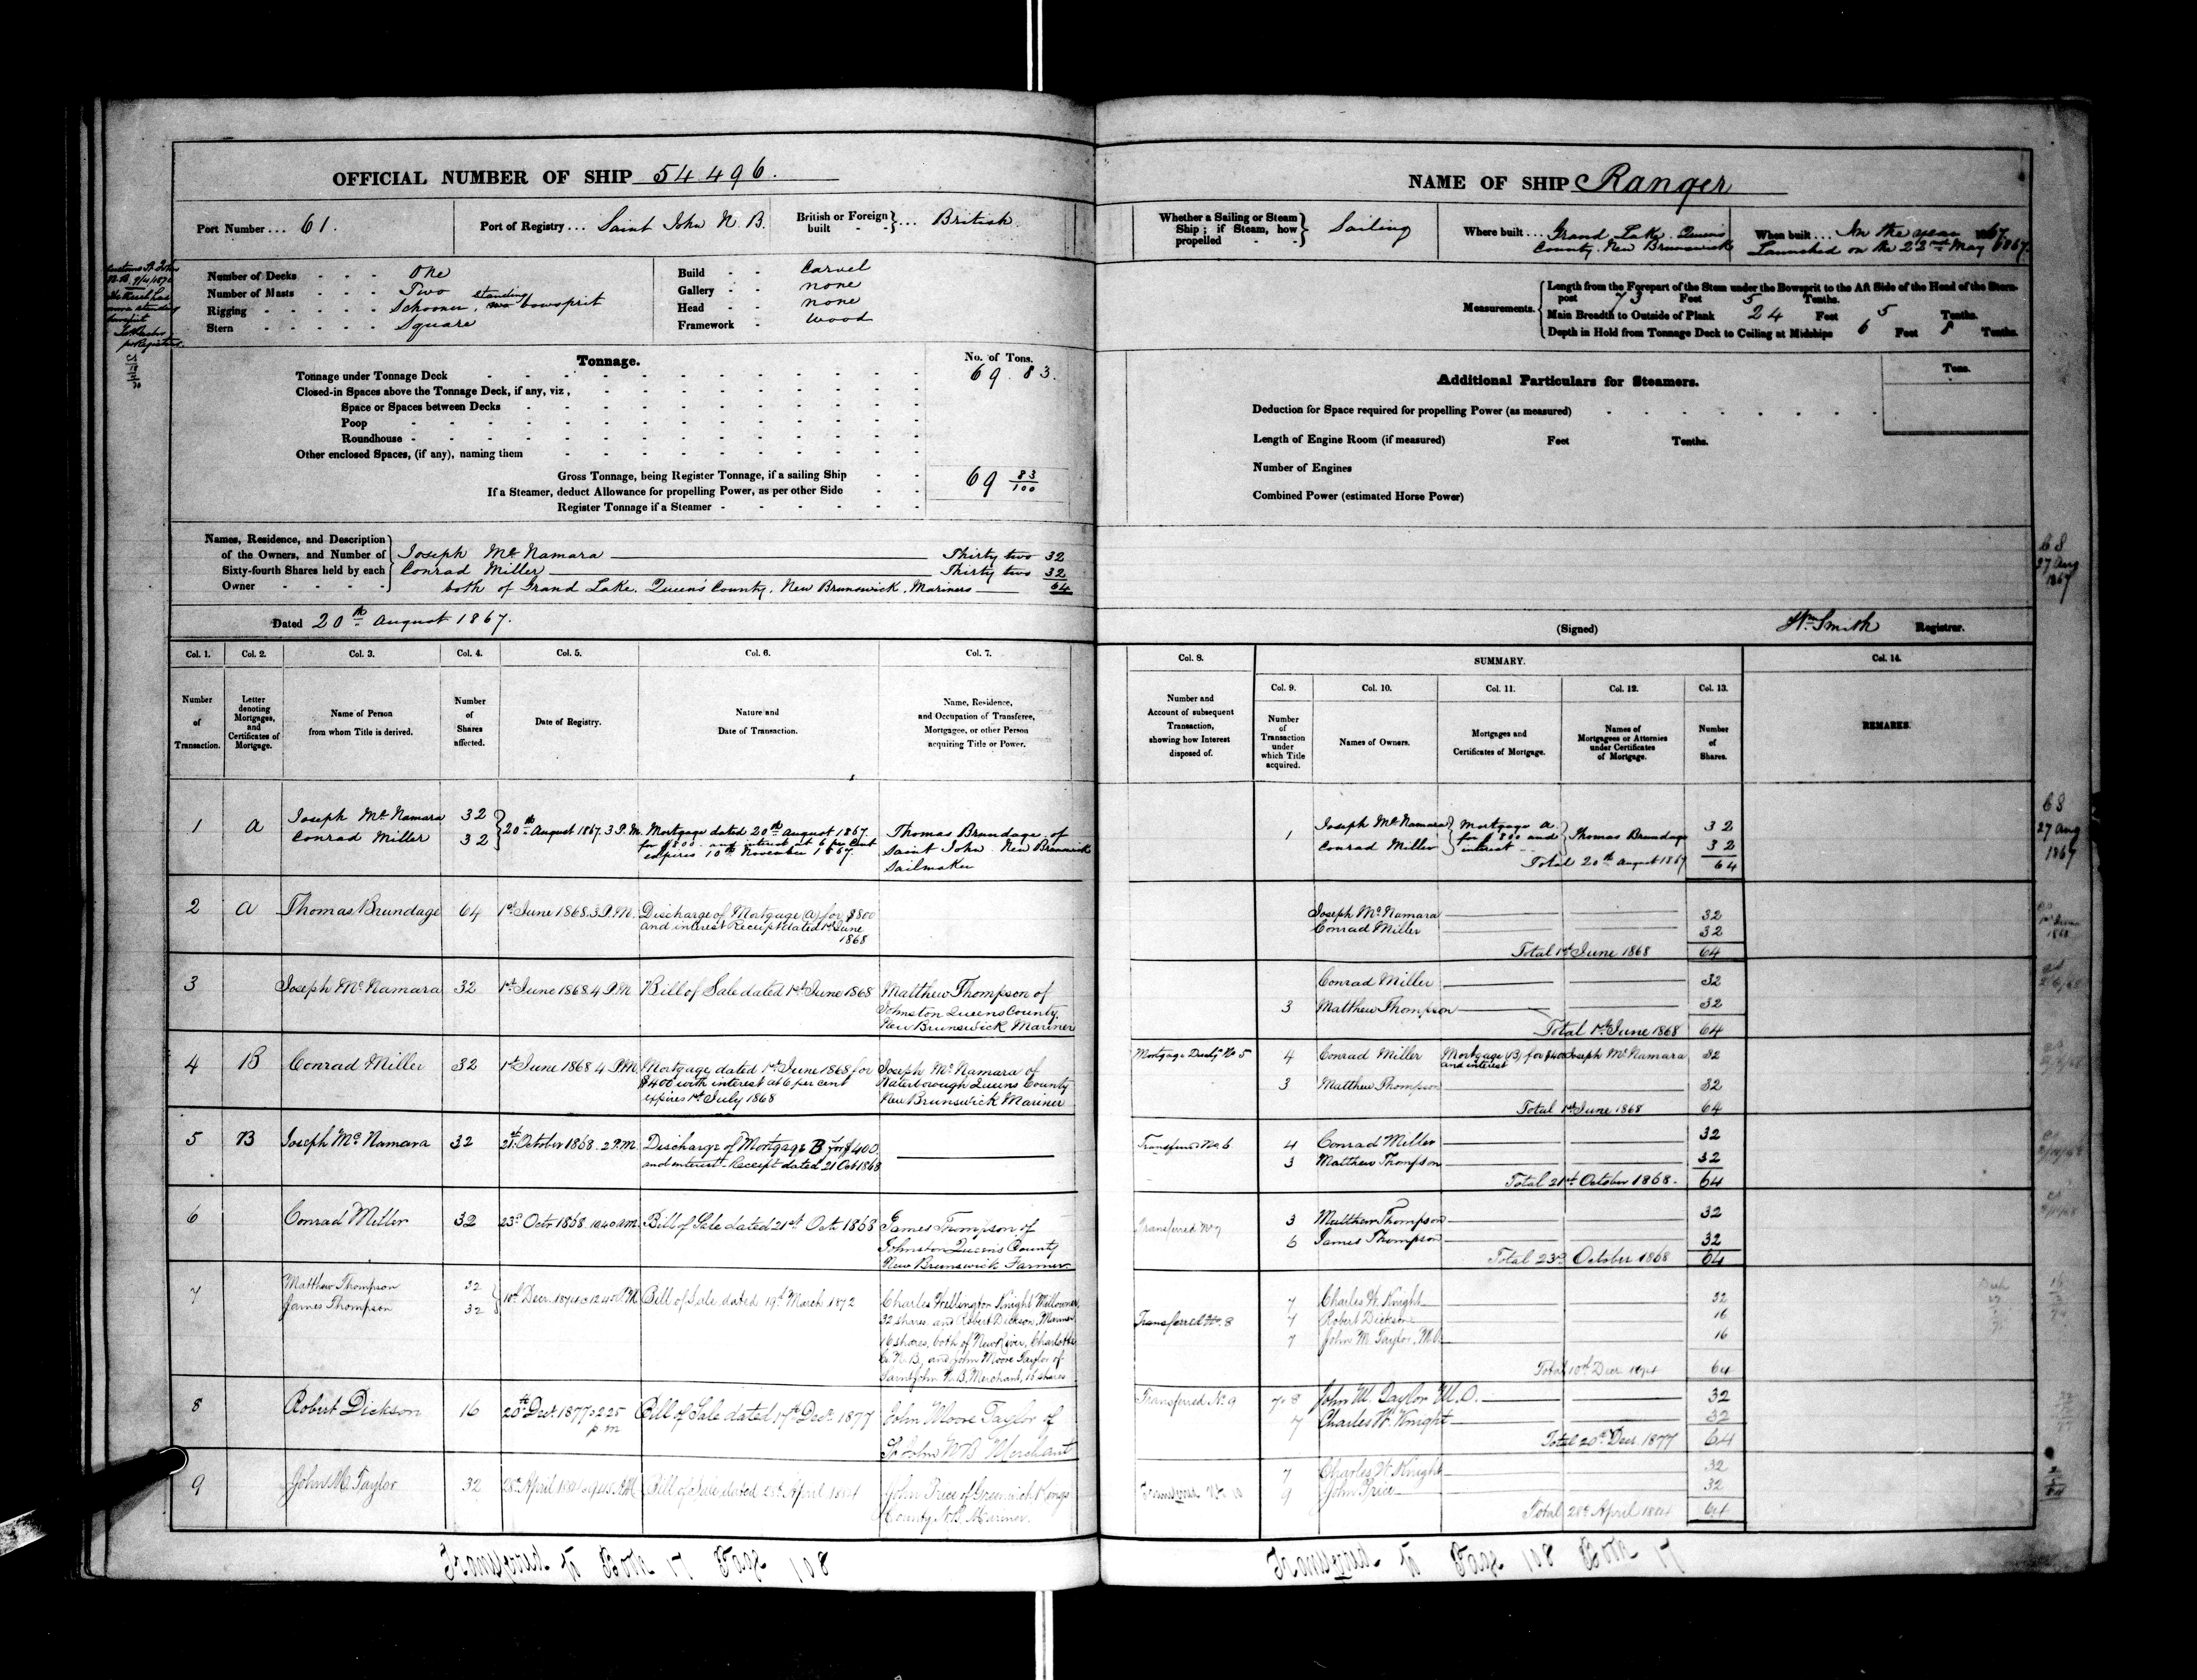 OFFICIAL NUMBER OF SHIP 54496.
Port Number... 61.
Port of Registry... Saint John N.B.
British or Foreign built - - } ... British
Customs St John
N.B. 9/4/187
The Vessel has
standing
bowsprit
pr Registrar
Number of Decks - - - - One
Number of Masts - - - - Two
Rigging - - - - - Schooner, standing no bowsprit
Stern - - - - - Square
Build - - Carvel
Gallery - - none
Head - - none
Framework - wood
Tonnage.
No. of Tons.
Tonnage under Tonnage Deck 69.83.
Closed-in Spaces above the Tonnage Deck, if any, viz,
Space or Spaces between Decks
Poop
Roundhouse
Other enclosed Spaces, (if any), naming them
Gross Tonnage, being Register Tonnage, if a sailing Ship 69 83/100
If a Steamer, deduct Allowance for propelling Power, as per other Side
Register Tonnage if a Steamer
Names, Residence, and Description
of the Owners, and Number of
Sixty-fourth Shares held by each
Owner
Joseph McNamara Thirty two 32
Conrad Miller Thirty two 32
both of Grand Lake. Queens County. New Brunswick. Mariners 64
Dated 20th August 1867.
Col. 1. Col. 2. Col. 3. Col. 4. Col. 5. Col. 6. Col. 7.
Number of Transaction.
Letter denoting Mortgages, and Certificates of Mortgage.
Name of Person from whom Title is derived.
Number of Shares affected.
Date of Registry.
Nature and Date of Transaction.
Name, Residence, and Occupation of Transferee, Mortgagee, or other Person acquiring Title or Power.
1 A Joseph McNamara 32
Conrad Miller 32
20th August 1867. 3 P.M.
Mortgage dated 20th August 1867.
for $800. and interest at 6 per Cent
expires 10th November 1867.
Thomas Brundage of
Saint John. New Brunswick
Sailmaker
2 A Thomas Brundage 64 1st June 1868. 3 P.M.
Discharge of Mortgage (A) for $800
and interest Receipt dated 1st June
1868
3 Joseph McNamara 32 1st June 1868 4 P.M
Bill of Sale dated 1st June 1868
Matthew Thompson of
Johnston Queens County.
New Brunswick Mariner
4 B Conrad Miller 32 1st June 1868 4 P.M.
Mortgage dated 1st June 1868 for
$400 with interest at 6 per cent
expires 1st July 1868
Joseph McNamara of
Waterborough Queens County
New Brunswick Mariner
5 B Joseph McNamara 32 21st October 1868. 2 P.M.
Discharge of Mortgage B for $400.
and interest. Receipt dated 21 Oct 1868
6 Conrad Miller 32 23rd Octr 1868 10.40 A.M.
Bill of Sale dated 21st Oct 1868
James Thompson of
Johnston Queens County
New Brunswick Farmer
7 Matthew Thompson 32
James Thompson 32
10th Decr. 1874
Bill of Sale dated 19th March 1872
Charles Wellington Knight Millowner,
32 shares. and Robert Dickson, Mariner
16 shares, both of New River, Charlotte
Co. N.B, and John Moore Taylor of
Saint John N.B. Merchant, 16 shares
8 Robert Dickson 16 20th Decr. 1877 2.25
p m
Bill of Sale dated 17th Decr. 1877
John Moore Taylor of
St John NB Merchant
9 John M. Taylor 32 28th April 1884
Bill of Sale dated 28th April 1884
John Price of Greenwich Kings
County N.B. Mariner.
NAME OF SHIP Ranger
Whether a Sailing or Steam Ship; if Steam, how propelled - - } Sailing
Where built... Grand Lake. Queens
County. New Brunswick
When built... In the year 1867.
Launched on the 23rd May 1867.
Measurements.
Length from the Forepart of the Stem under the Bowsprit to the Aft Side of the Head of the Stern-
post 73 Feet 5 Tenths.
Main Breadth to Outside of Plank 24 Feet 5 Tenths.
Depth in Hold from Tonnage Deck to Ceiling at Midships 6 Feet 8 Tenths.
Additional Particulars for Steamers.
Tons.
Deduction for Space required for propelling Power (as measured)
Length of Engine Room (if measured) Feet Tenths.
Number of Engines
Combined Power (estimated Horse Power)
68
27 Aug
1867
(Signed) Wm Smith Registrar.
Col. 8. SUMMARY. Col. 14.
Col. 9. Col. 10. Col. 11. Col. 12. Col. 13.
Number and Account of subsequent Transaction, showing how Interest disposed of.
Number of Transaction under which Title acquired.
Names of Owners.
Mortgages and Certificates of Mortgage.
Names of Mortgagees or Attornies under Certificates of Mortgage.
Number of Shares.
REMARKS.
1 Joseph McNamara Mortgage A. Thomas Brundage 32
Conrad Miller for $800 and interest 32
Total 20th August 1867 64
68
27 Aug
1867
Joseph McNamara 32
Conrad Miller 32
Total 1st June 1868 64
Conrad Miller 32
3 Matthew Thompson 32
Total 1st June 1868 64
Mortgage Dischg No 5 4 Conrad Miller Mortgage (B) for $400 Joseph McNamara 32
and interest
3 Matthew Thompson 32
Total 1st June 1868 64
Transferred No. 6 4 Conrad Miller 32
3 Matthew Thompson 32
Total 21st October 1868. 64
Transferred No 7 3 Matthew Thompson 32
6 James Thompson 32
Total 23rd October 1868 64
Transferred No. 8 7 Charles W. Knight 32
7 Robert Dickson 16
7 John M. Taylor, M.O. 16
Total 10th Decr 1874 64
Transferred No. 9 7.8 John M. Taylor M.O. 32
7 Charles W. Knight 32
Total 20th Decr 1877 64
Transferred No 10 7 Charles W. Knight 32
9 John Price 32
Total 28th April 1884 64
Transferred to Book 17 Page 108
Transferred to Page 108 Book 17